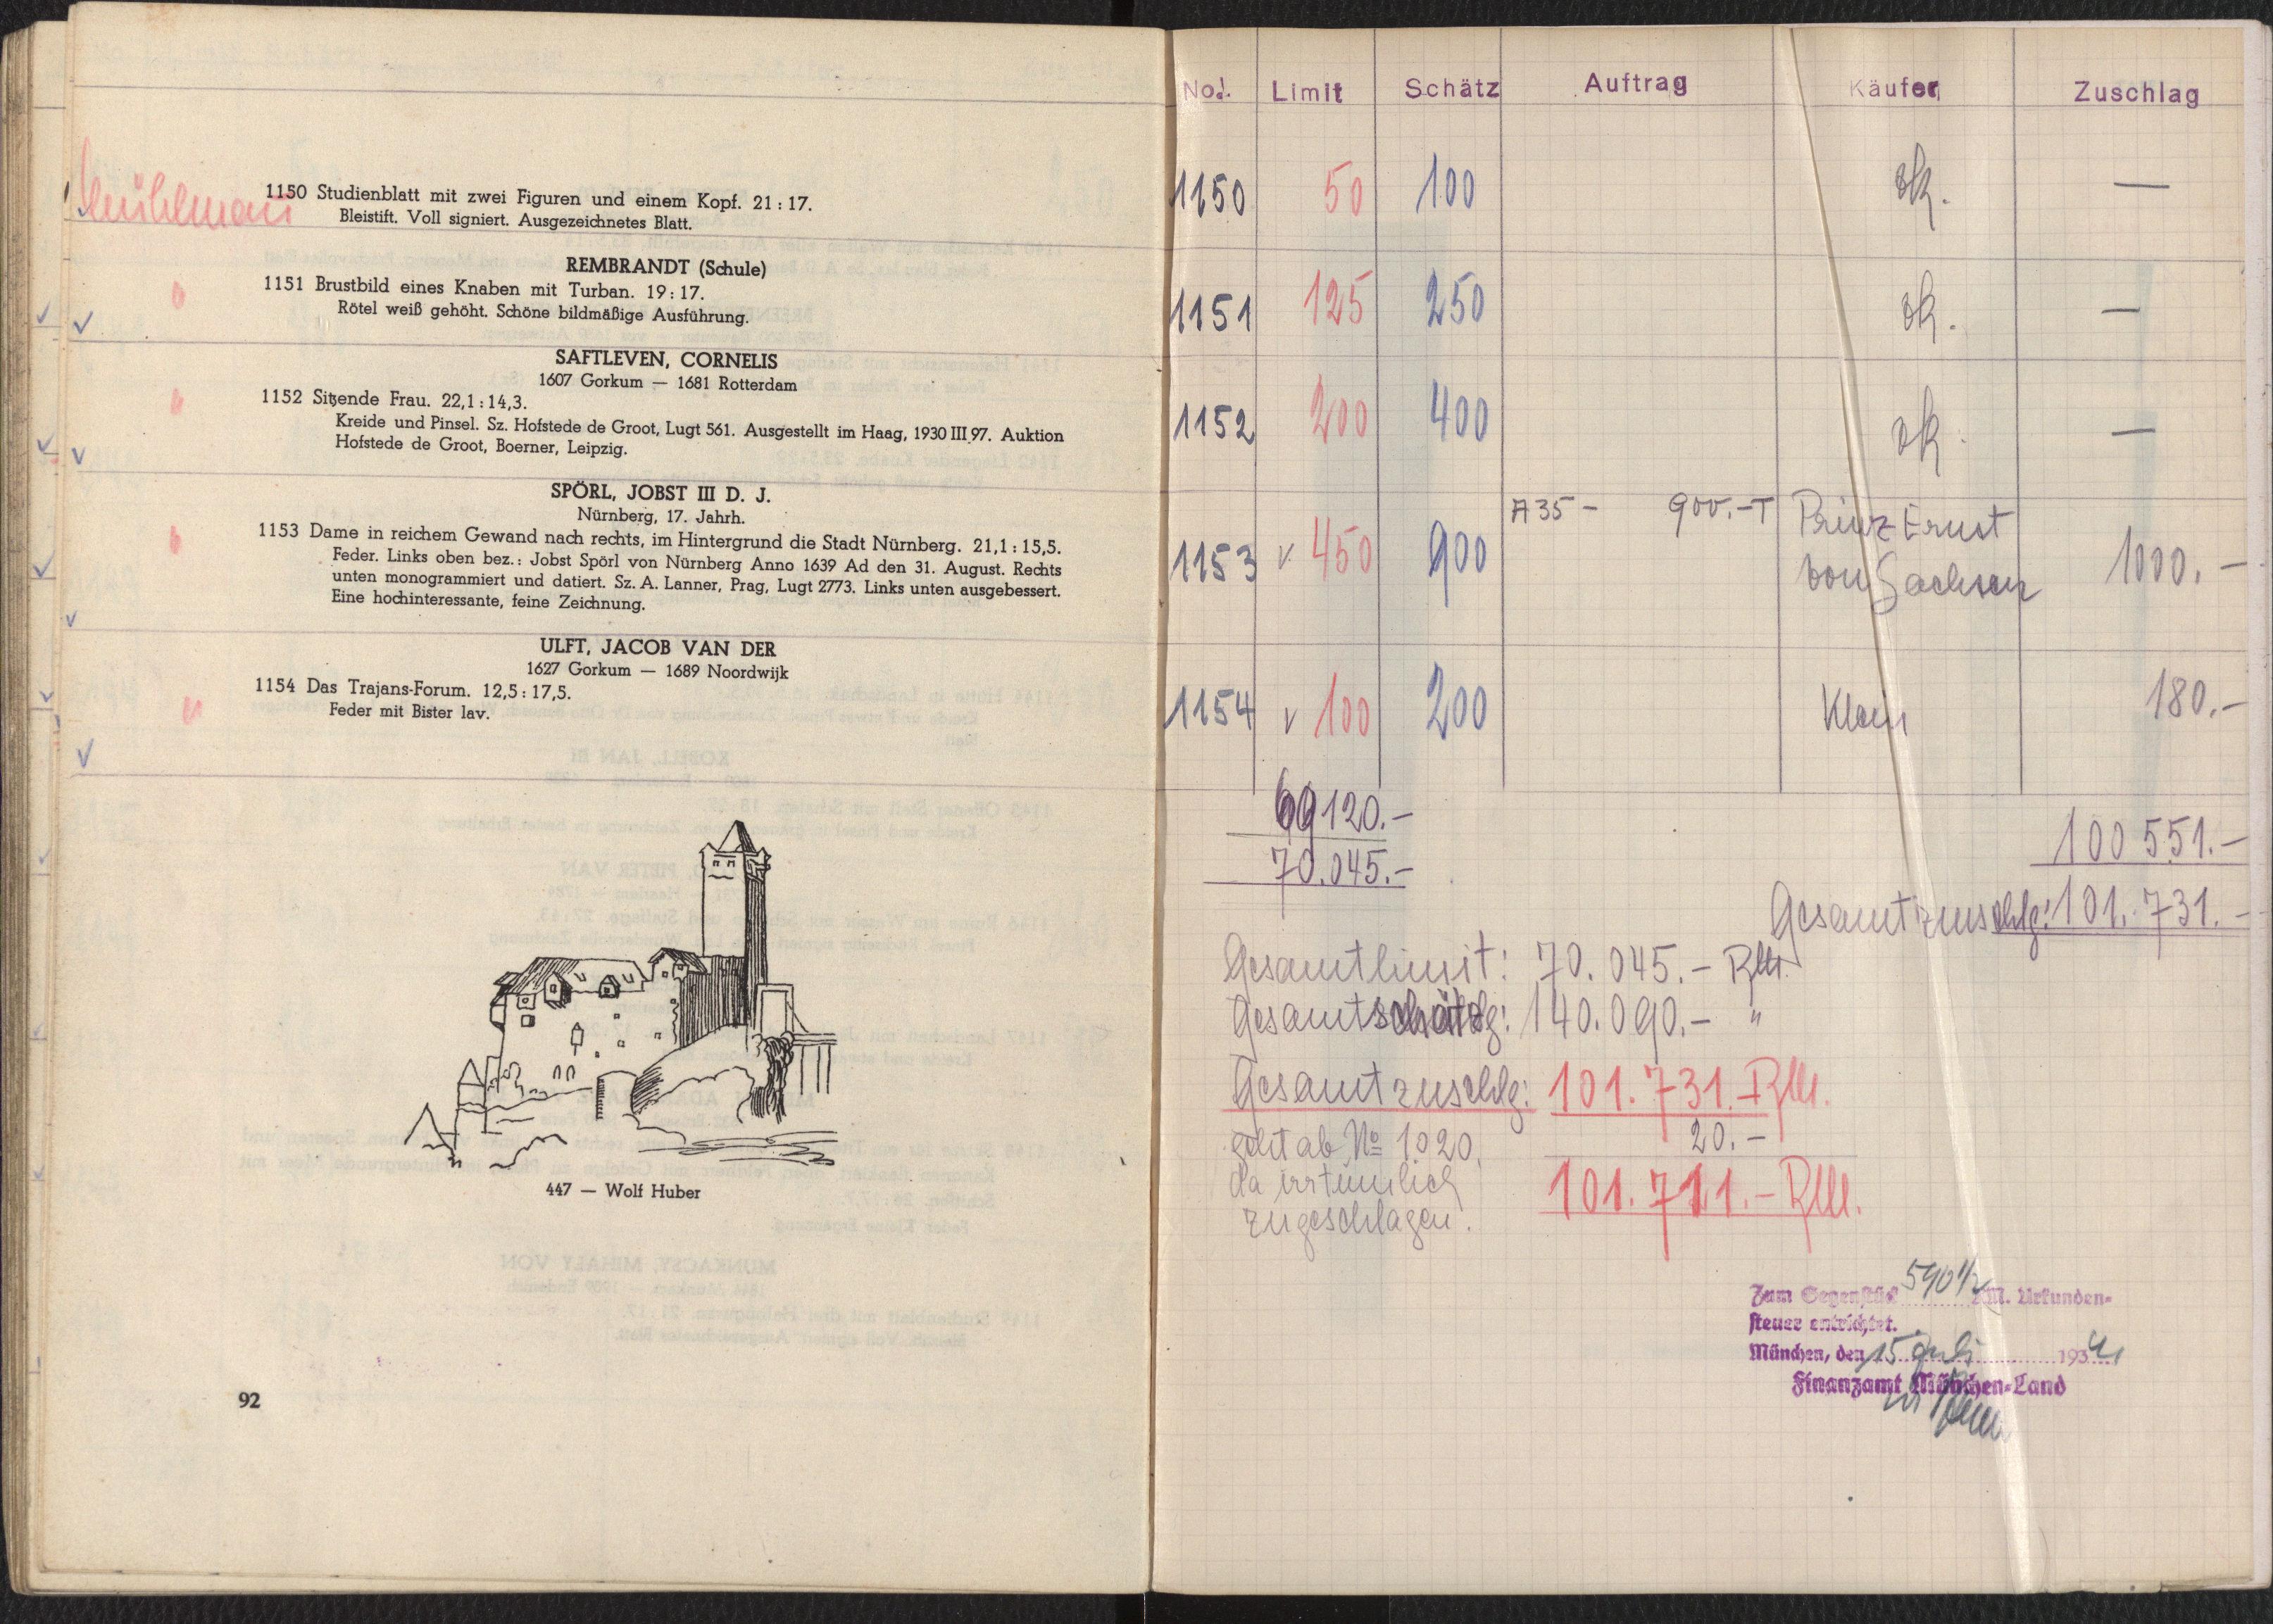 Mühlmann
1150 Studienblatt mit zwei Figuren und einem Kopf. 21 : 17.
Bleistift. Voll signiert. Ausgezeichnetes Blatt.
REMBRANDT (Schule)
1151 Brustbild eines Knaben mit Turban. 19 : 17.
Rötel weiß gehöht. Schöne bildmäßige Ausführung.
SAFTLEVEN, CORNELIS
1607 Gorkum — 1681 Rotterdam
1152 Sitzende Frau. 22,1 : 14,3.
Kreide und Pinsel. Sz. Hofstede de Groot, Lugt 561. Ausgestellt im Haag, 1930 III 97. Auktion
Hofstede de Groot, Boerner, Leipzig.
SPÖRL, JOBST III D. J.
Nürnberg, 17. Jahrh.
1153 Dame in reichem Gewand nach rechts, im Hintergrund die Stadt Nürnberg. 21,1 : 15,5.
Feder. Links oben bez.: Jobst Spörl von Nürnberg Anno 1639 Ad den 31. August. Rechts
unten monogrammiert und datiert. Sz. A. Lanner, Prag, Lugt 2773. Links unten ausgebessert.
Eine hochinteressante, feine Zeichnung.
ULFT, JACOB VAN DER
1627 Gorkum — 1689 Noordwijk
1154 Das Trajans-Forum. 12,5 : 17,5.
Feder mit Bister lav.
447 — Wolf Huber
92
No. Limit Schätz Auftrag Käufer Zuschlag
1150 50 100 —
1151 125 250 —
1152 200 400 —
A 35 - 900.-T Prinz Ernst
1153 450 900 von Sachsen 1000.-
1154 100 200 Klein 180.-
69120.-
100 551.-
70.045.-
Gesamtzuschlg: 101.731.-
Gesamtlimit: 70.045.- RM.
Gesamtschätzg: 140.090.- "
Gesamtzuschlg: 101.731.- RM.
geht ab No 1020, 20.-
da irrtümlich 101.711.- RM.
zugeschlagen.
Zum Gegenstück 590 1/2 RM. Urkunden-
steuer entrichtet.
München, den 15. Juli 1934
Finanzamt München-Land